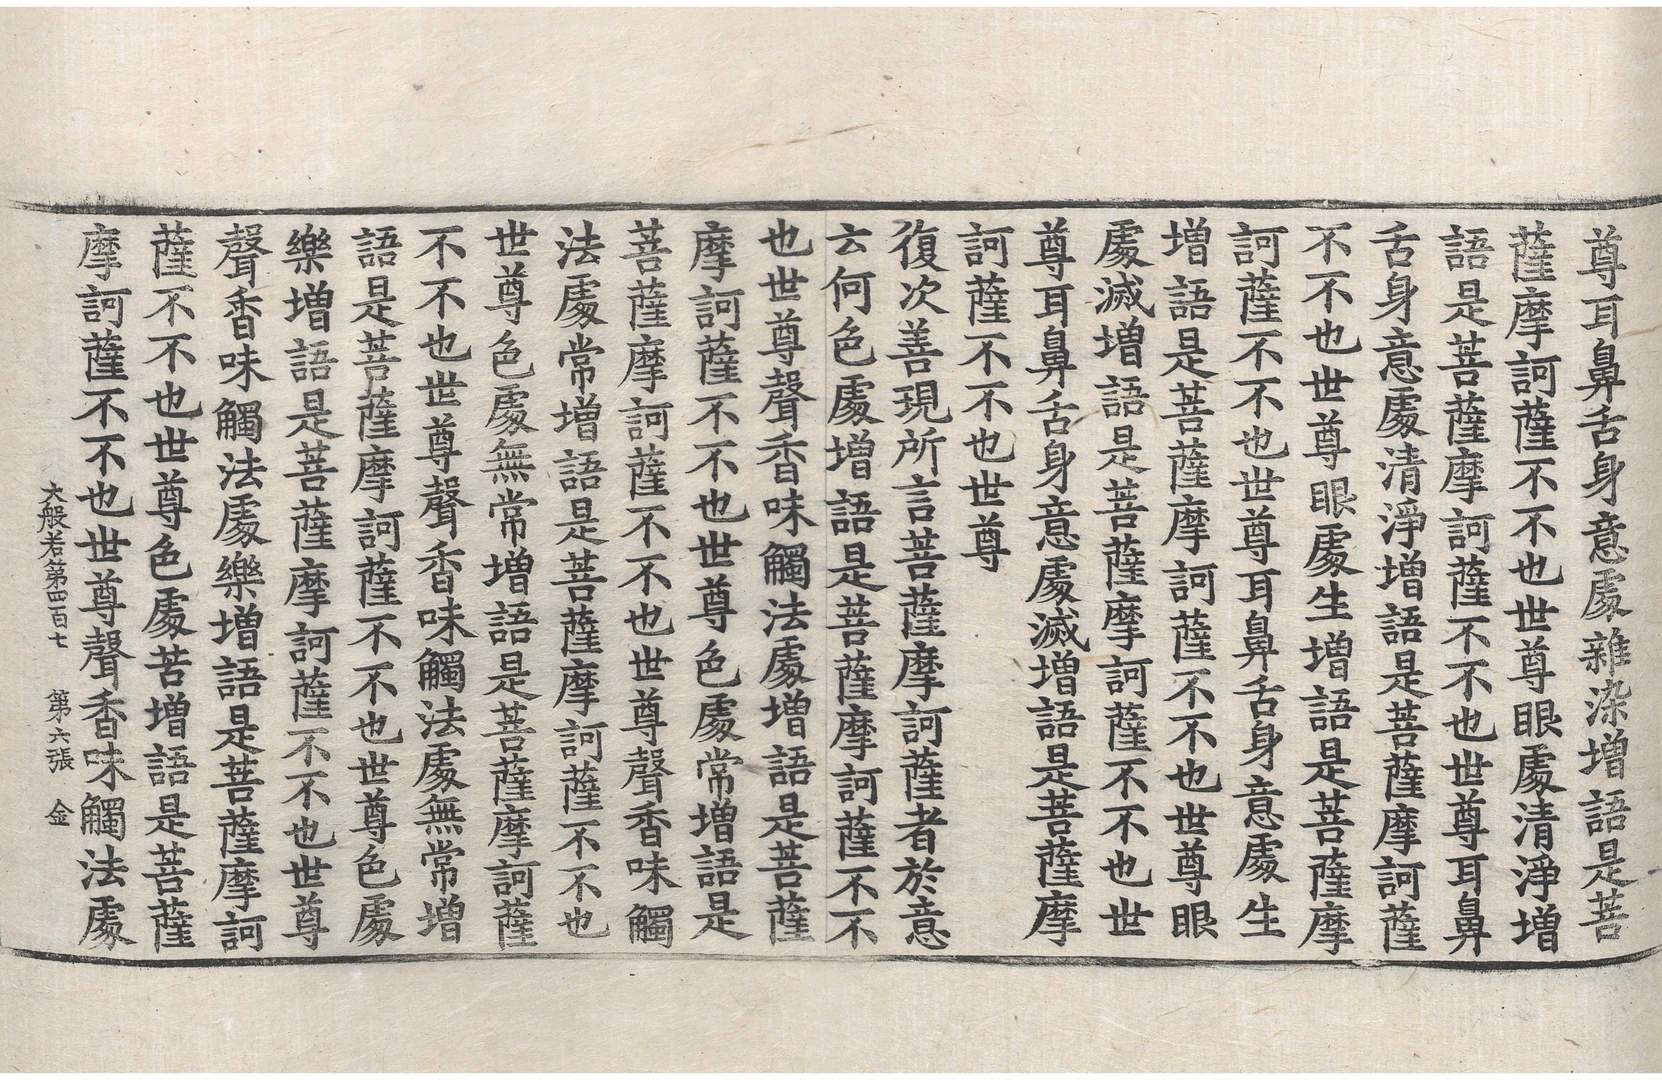 尊耳鼻舌身意處雜染增語是菩
薩摩訶薩不不也世尊眼處清淨增
語是菩薩摩訶薩不不也世尊耳鼻
舌身意處清淨增語是菩薩摩訶薩
不不也世尊眼處生增語是菩薩摩
訶薩不不也世尊耳鼻舌身意處生
增語是菩薩摩訶薩不不也世尊眼
處滅增語是菩薩摩訶薩不不也世
尊耳鼻舌身意處滅增語是菩薩摩
訶薩不不也世尊
復次善現所言菩薩摩訶薩者於意
云何色處增語是菩薩摩訶薩不不
也世尊聲香味觸法處增語是菩薩
摩訶薩不不也世尊色處常增語是
菩薩摩訶薩不不也世尊聲香味觸
法處常增語是菩薩摩訶薩不不也
世尊色處無常增語是菩薩摩訶薩
不不也世尊聲香味觸法處無常增
語是菩薩摩訶薩不不也世尊色處
樂增語是菩薩摩訶薩不不也世尊
聲香味觸法處樂增語是菩薩摩訶
薩不不也世尊色處苦增語是菩薩
摩訶薩不不也世尊聲香味觸法處
大般若第四百七 第六張 金